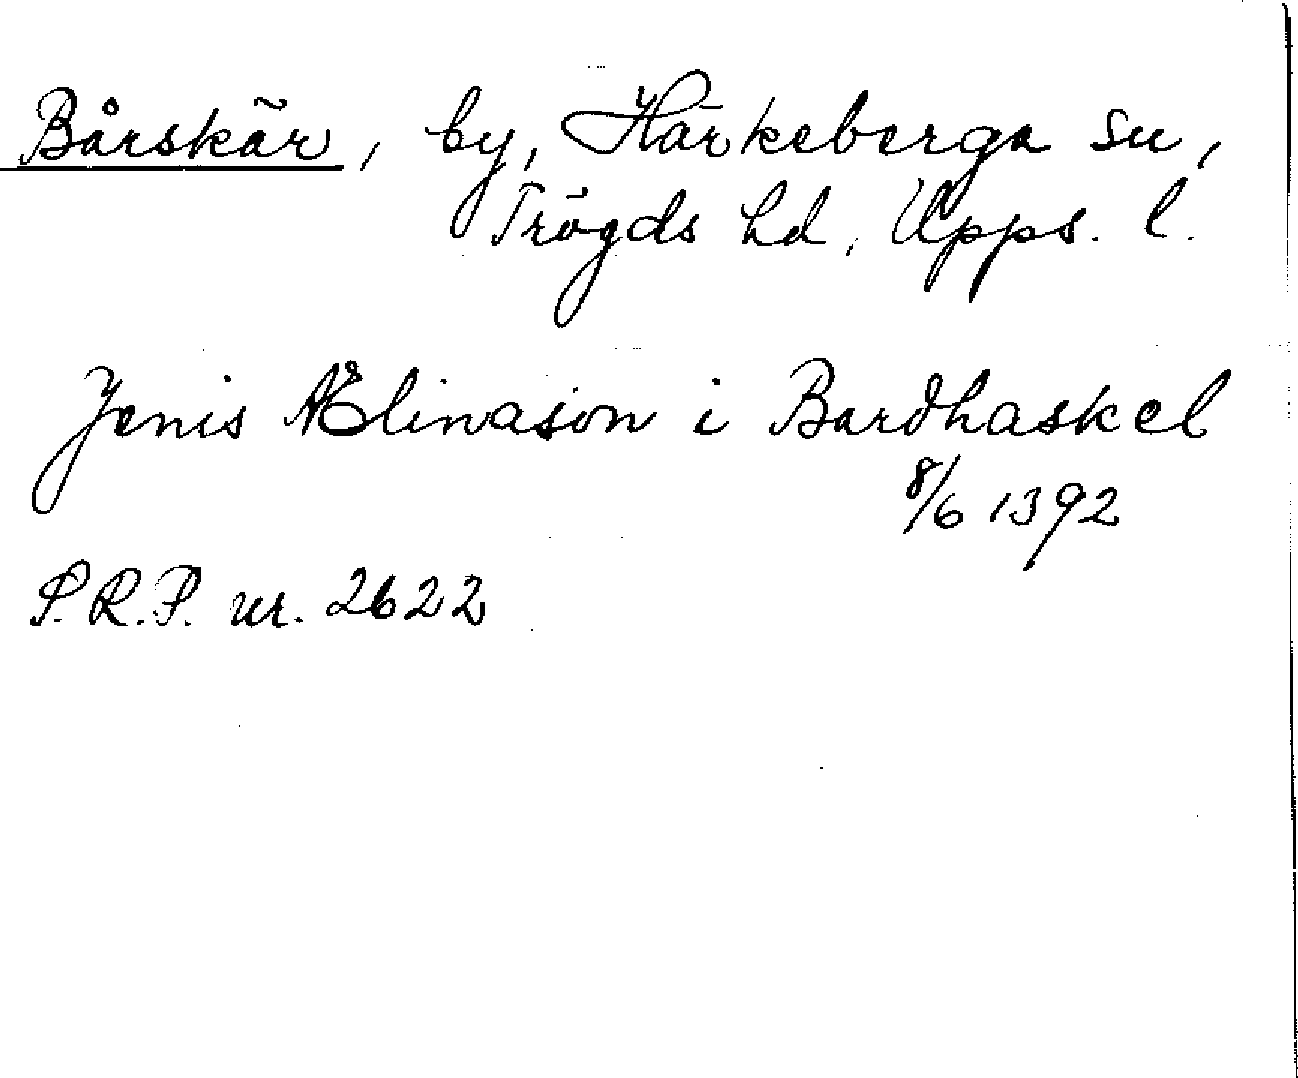 Bårskär, by, Härkeberga sn,
Trögds hd, Upps. l.
Jenis Ælinason i Bardhaskel
8/6 1392
S.R.P. nr. 2622